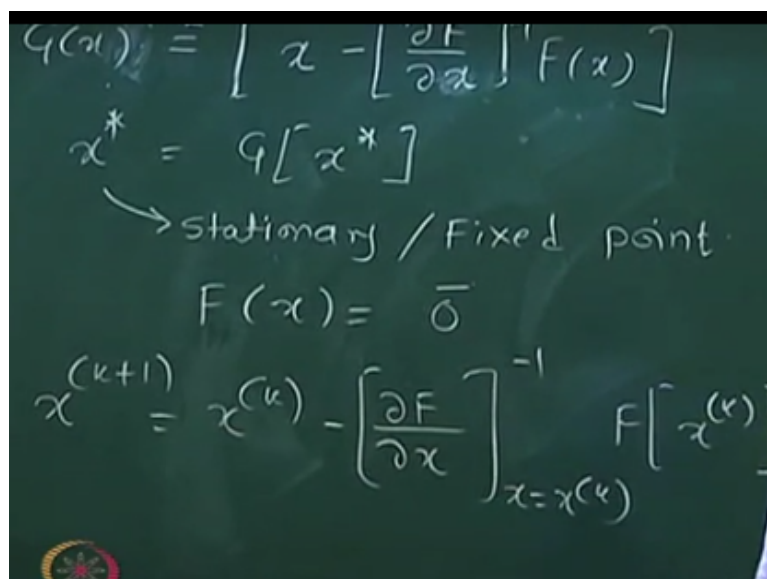 G(x) = [ x - [∂F/∂x]⁻¹ F(x) ]
x* = G[x*]
→ Stationary / Fixed point.
F(x) = 0̄
x⁽ᵏ⁺¹⁾ = x⁽ᵏ⁾ - [∂F/∂x]⁻¹ₓ₌ₓ₍ₖ₎ F[x⁽ᵏ⁾]